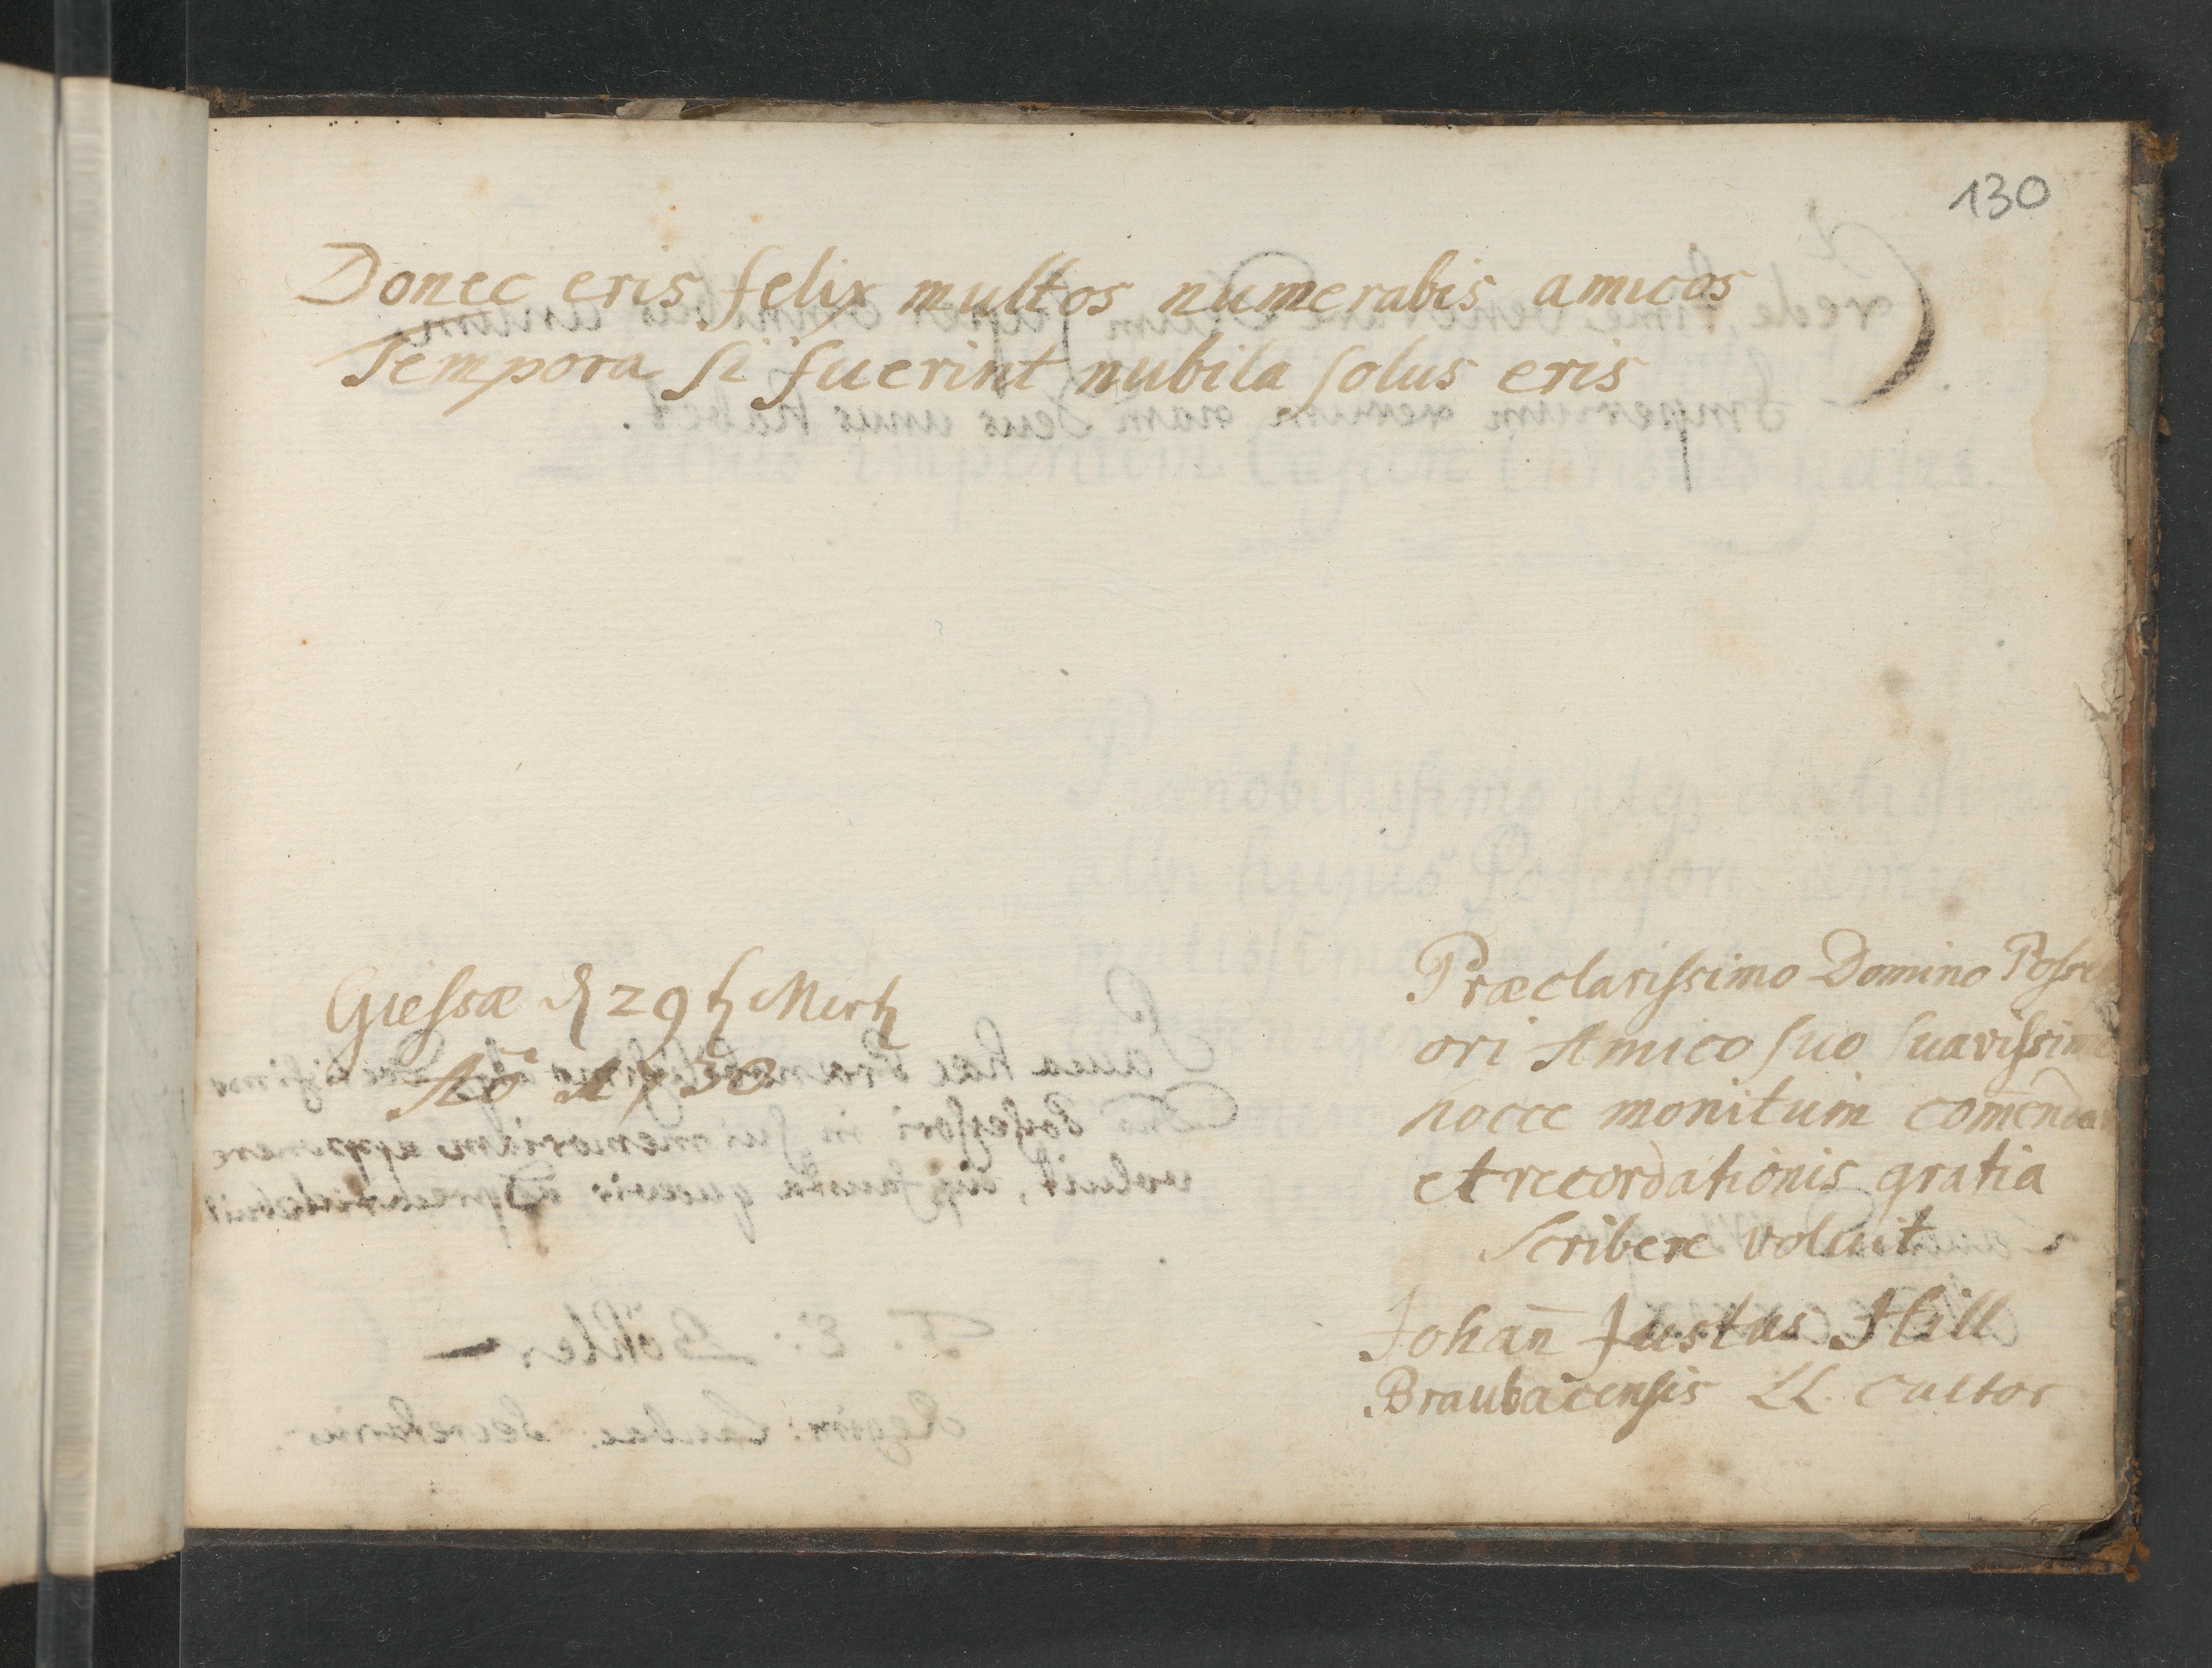 130
Donec eris felix multos numerabis amicos
Tempora si fuerint nubila solus eris
Giessæ d 29 Mertz
Aō 1730
Præclarissimo Domino Posse
ori Amico suo suavissimo
hocce monitum com̄enda
et recordationis gratia
scribere voluit
Johan̄ Justus Hill
Braubacensis LL. Cultor